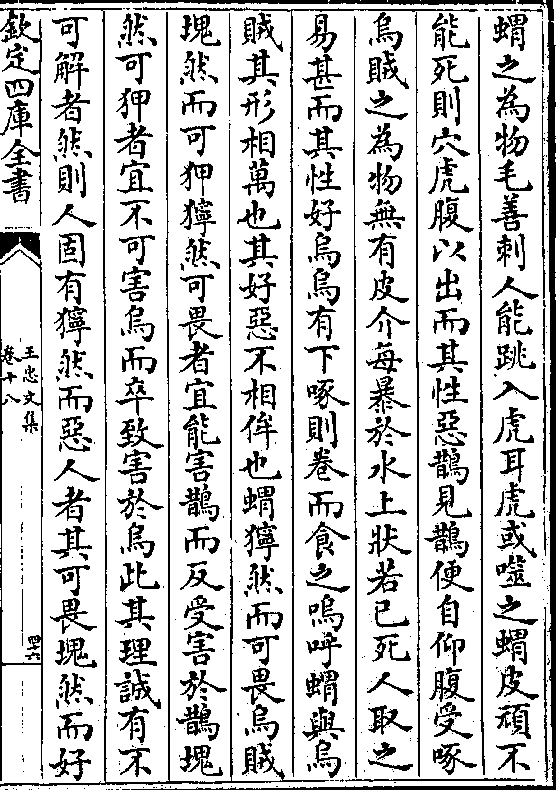 蝟之為物毛善刺人能跳入虎耳虎或噬之蝟皮頑不
能死則穴虎腹以出而其性惡鵲見鵲便自仰腹受啄
烏賊之為物無有皮介每暴於水上狀若已死人取之
易甚而其性好烏烏有下啄則卷而食之嗚呼蝟與烏
賊其形相萬也其好惡不相侔也蝟獰然而可畏烏賊
塊然而可狎獰然可畏者宜能害鵲而反受害於鵲塊
然可狎者宜不可害烏而卒致害於烏此其理誠有不
可解者然則人固有獰然而惡人者其可畏塊然而好
欽定四庫全書
王忠文集
卷十八
四十六